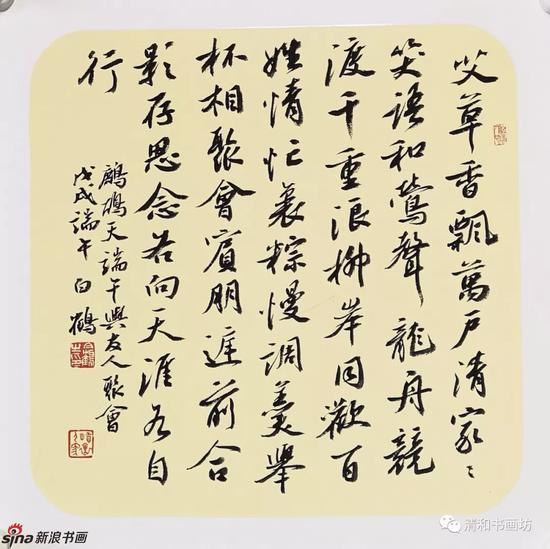 艾草香飄萬戶清家〻
笑語和鶯聲龍舟競
渡千重浪柳岸同歡百
姓情忙裹粽慢調羹舉
杯相聚會賓朋庭前合
影存思念若向天涯各自
行
鷓鴣天端午與友人聚會
戊戌端午白鶴
sina新浪书画
清和书画坊